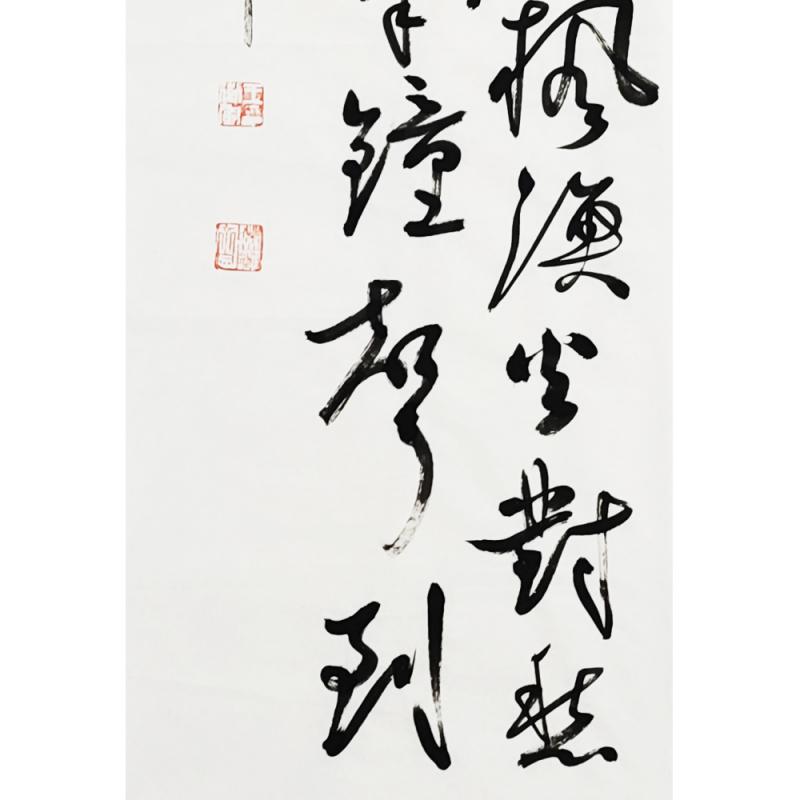 楓漁火對愁
半鐘聲到